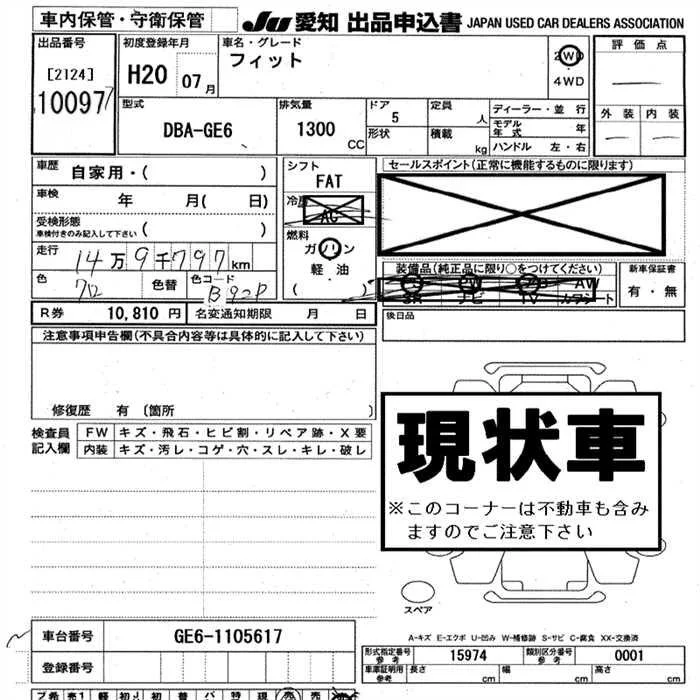 車内保管・守衛保管 JU 愛知 出品申込書 JAPAN USED CAR DEALERS ASSOCIATION
出品番号
[2124]
10097
初度登録年月
H20 07月
車名・グレード
フィット
2WD
4WD
評価点
外装 内装
型式
DBA-GE6
排気量
1300
CC
ドア
5
形状
定員
人
積載
kg
ディーラー・並行
モデル年式 年
ハンドル 左・右
車歴 自家用・( )
車検 年 月( 日)
受検形態
車検付きのみ記入して下さい ( )
走行 14万9千797km
色 色替 色コード
B92P
シフト
FAT
冷房
AC
燃料
ガソリン
軽油
( )
セールスポイント(正常に機能するものに限ります)
装備品(純正品に限り○をつけてください)
SR ナビ TV カワシート
AW
新車保証書
有・無
R券 10,810 円 名変通知期限 月 日
後日品
注意事項申告欄(不具合内容等は具体的に記入して下さい)
修復歴 有 〔箇所 〕
検査員記入欄
FW キズ・飛石・ヒビ割・リペア跡・X要
内装 キズ・汚レ・コゲ・穴・スレ・キレ・破レ
現状車
※このコーナーは不動車も含み
ますのでご注意下さい
スペア
A-キズ E-エクボ U-凹み W-補修跡 S-サビ C-腐食 XX-交換済
車台番号 GE6-1105617
登録番号
形式指定番号
参考
15974
類別区分番号
参考
0001
車庫証明用
参考
長さ cm 幅 cm 高さ cm